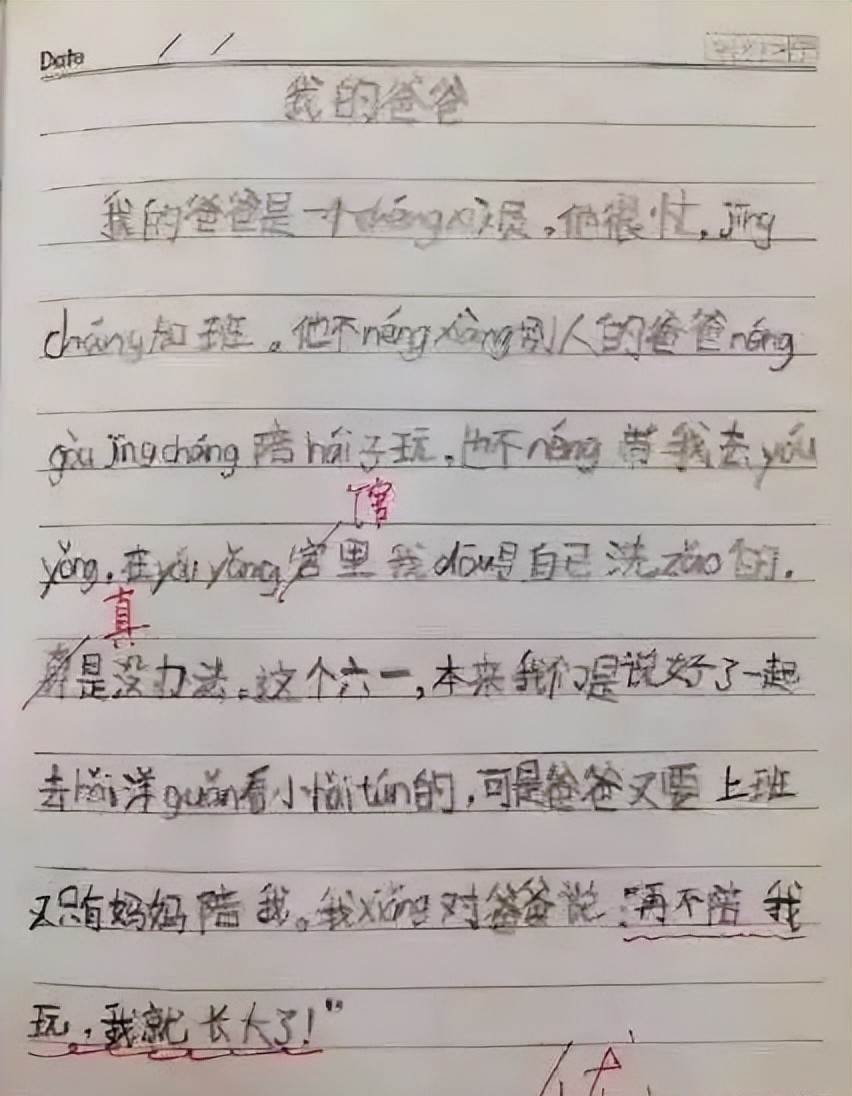 Date / /
我的爸爸
我的爸爸是一个chéngxù员,他很忙,jīng
cháng加班。他不néngxiàng别人的爸爸néng
gòu jīngcháng陪hái子玩,也不néng带我去yóu
馆
yǒng.在yóuyǒng宫里我dōu是自己洗zǎo的.
真
是没办法。这个六一,本来我们是说好了一起
去hǎi洋guǎn看小hǎitún的,可是爸爸又要上班
又只有妈妈陪我。我xiǎng对爸爸说:"再不陪我
玩,我就长大了!"
优